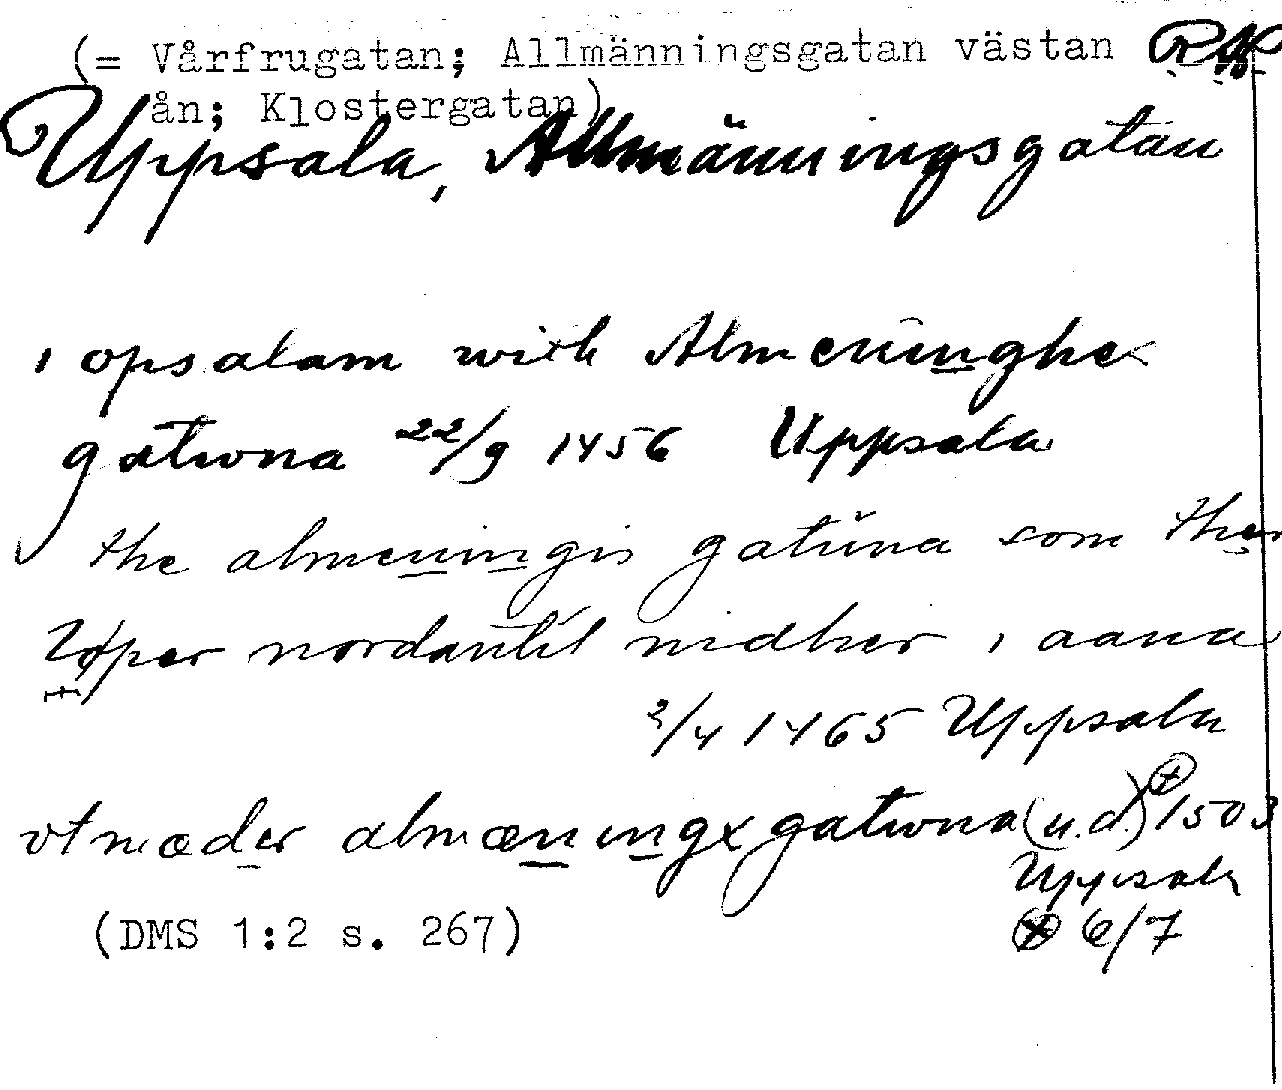 (= Vårfrugatan; Allmänningsgatan västan
ån; Klostergatan)
Uppsala, Allmänningsgatan
ı opsalam with Almeninghe
gatwna 22/9 1456 Uppsala
the almeningis gatuna som ther
løper nordantil nidher ı aana
2/4 1465 Uppsala
vtmæder almæningxgatwna (u.d.) 1503
Uppsala
6/7
(DMS 1:2 s. 267)